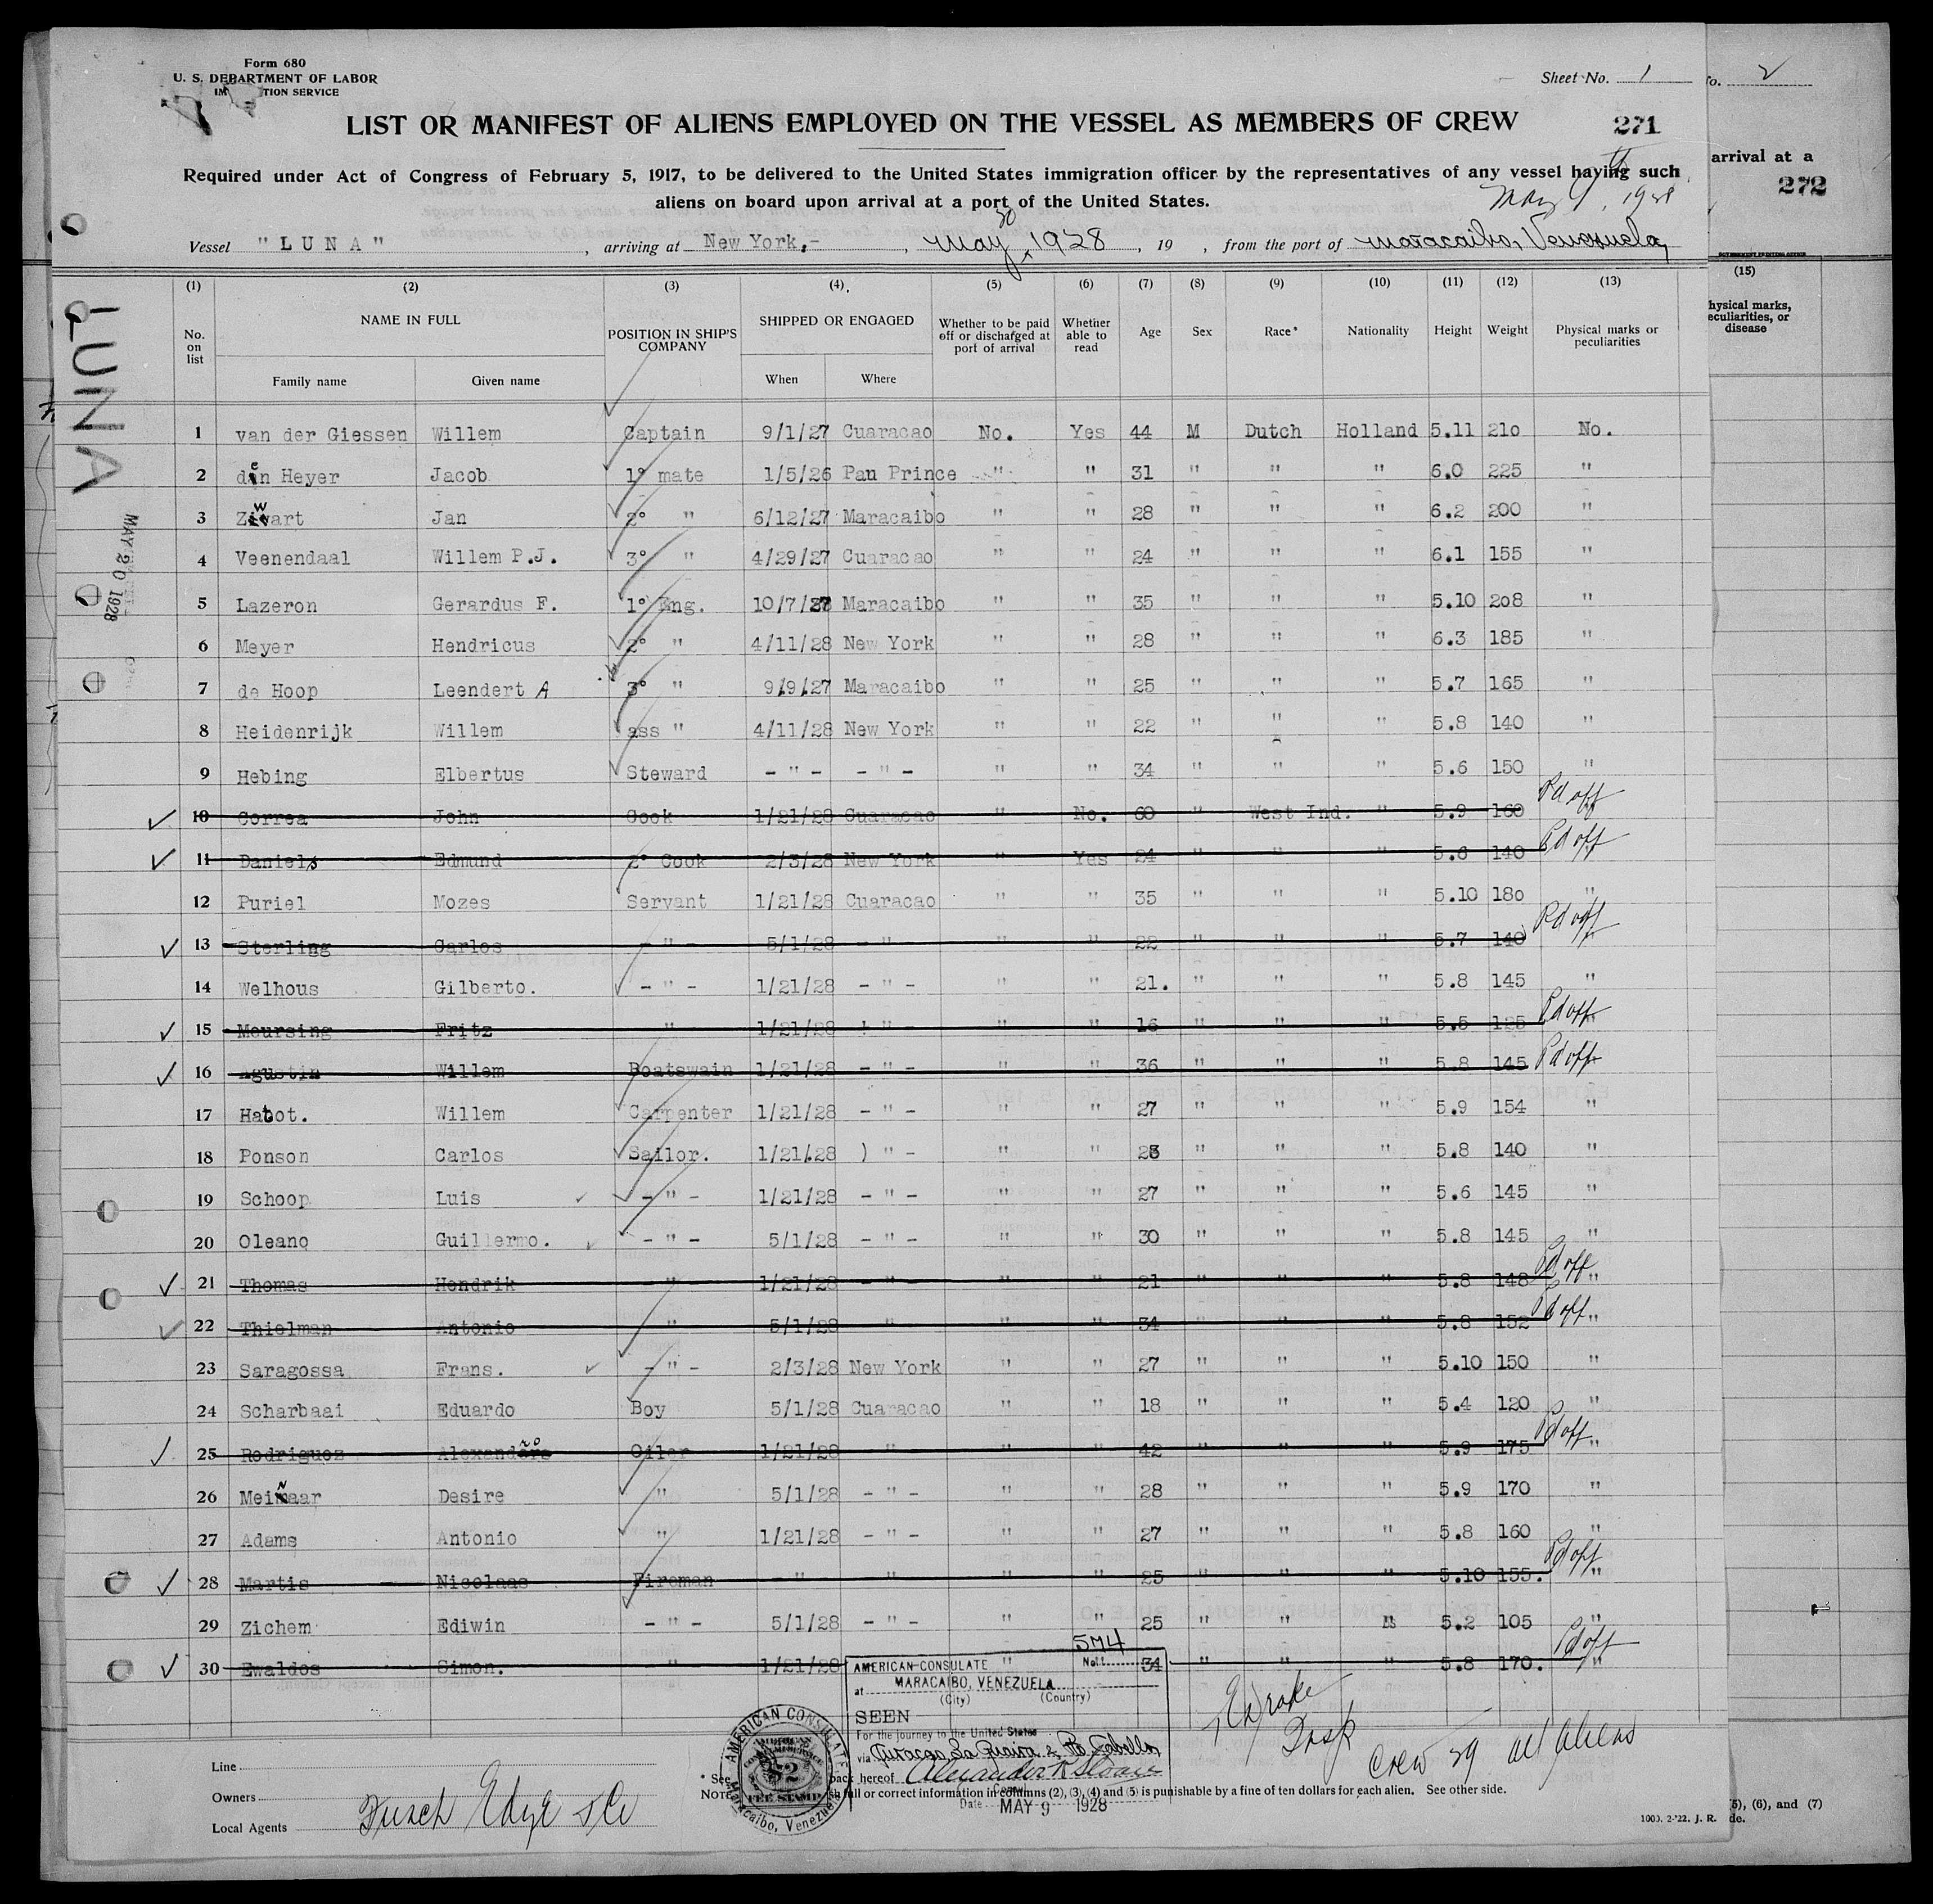 Form 680
U. S. DEPARTMENT OF LABOR
TION SERVICE
Sheet No. 1
2
LIST OR MANIFEST OF ALIENS EMPLOYED ON THE VESSEL AS MEMBERS OF CREW
271
Required under Act of Congress of February 5, 1917, to be delivered to the United States immigration officer by the representatives of any vessel having such
aliens on board upon arrival at a port of the United States.
arrival at a
272
Vessel "LUNA" , arriving at New York.- , May 20 1928 , 19 , from the port of Maracaibo, Venezuela,
LUNA
MAY 20 1928
(1) (2) (3) (4) (5) (6) (7) (8) (9) (10) (11) (12) (13) (15)
No. on list NAME IN FULL POSITION IN SHIP'S COMPANY SHIPPED OR ENGAGED Whether to be paid off or discharged at port of arrival Whether able to read Age Sex Race* Nationality Height Weight Physical marks or peculiarities
Family name Given name When Where
hysical marks,
eculiarities, or
disease
1 van der Giessen Willem Captain 9/1/27 Cuaracao No. Yes 44 M Dutch Holland 5.11 210 No.
2 den Heyer Jacob 1° mate 1/5/26 Pau Prince " " 31 " " " 6.0 225 "
3 Zwart Jan 2° " 6/12/27 Maracaibo " " 28 " " " 6.2 200 "
4 Veenendaal Willem P.J. 3° " 4/29/27 Cuaracao " " 24 " " " 6.1 155 "
5 Lazeron Gerardus F. 1° Eng. 10/7/27 Maracaibo " " 35 " " " 5.10 208 "
6 Meyer Hendricus 2° " 4/11/28 New York " " 28 " " " 6.3 185 "
7 de Hoop Leendert A 3° " 9/9/27 Maracaibo " " 25 " " " 5.7 165 "
8 Heidenrijk Willem ass " 4/11/28 New York " " 22 " " " 5.8 140 "
9 Hebing Elbertus Steward - " - - " - " " 34 " " " 5.6 150 "
10 Correa John Cook 1/21/28 Cuaracao " No. 60 " West Ind. " 5.9 160 Pd off
11 Daniels Edmund 2° Cook 2/3/28 New York " Yes 24 " " " 5.6 140 Pd off
12 Puriel Mozes Servant 1/21/28 Cuaracao " " 35 " " " 5.10 180 "
13 Sterling Carlos - " - 5/1/28 - " - " " 22 " " " 5.7 140 Pd off "
14 Welhous Gilberto. - " - 1/21/28 - " - " " 21. " " " 5.8 145 "
15 Moursing Fritz " 1/21/28 " - " " 16 " " " 5.5 125 Pd off "
16 Agustin Willem Boatswain 1/21/28 - " - " " 36 " " " 5.8 145 Pd off
17 Hatot. Willem Carpenter 1/21/28 - " - " " 27 " " " 5.9 154 "
18 Ponson Carlos Sailor. 1/21.28 ) " - " " " " " 5.8 140 "
19 Schoop Luis - " - 1/21/28 - " - " " 27 " " " 5.6 145 "
20 Oleano Guillermo. - " - 5/1/28 - " - " " 30 " " " 5.8 145 "
21 Thomas Hendrik " 1/21/28 - " - " " 21 " " " 5.8 148 Pd off "
22 Thielman Antonio " 5/1/28 " " " 34 " " " 5.8 152 Pd off "
23 Saragossa Frans. - " - 2/3/28 New York " " 27 " " " 5.10 150 "
24 Scharbaai Eduardo Boy 5/1/28 Cuaracao " " 18 " " " 5.4 120 "
25 Rodriguez Alexandro Oiler 1/21/28 " " " 42 " " " 5.9 175 Pd off "
26 Meinaar Desire " 5/1/28 - " - " " 28 " " " 5.9 170 "
27 Adams Antonio " 1/21/28 - " - " " 27 " " " 5.8 160 "
28 Martis Nicolaas Fireman - " " " " 25 " " " 5.10 155. Pd off "
29 Zichem Ediwin - " - 5/1/28 - " - " " 25 " " " 5.2 105 "
30 Ewaldos Simon. - " 1/21/28 " 34 " " " 5.8 170. Pd off "
AMERICAN CONSULATE No. 574
at MARACAIBO, VENEZUELA
(City) (Country)
SEEN
For the journey to the United States
via Curacao La Guaira & Pto Cabello
Alexander K Sloan
Consul
Date MAY 9 1928
AMERICAN CONSULATE
$2
FEE STAMP
Maracaibo, Venezuela
Insp
Crew 29 all aliens
Line
Owners
Local Agents Funch Edye & Co
* See back hereof
NOTE full or correct information in columns (2), (3), (4) and (5) is punishable by a fine of ten dollars for each alien. See other side.
1000. 2-'22. J. R.
5), (6), and (7)
de.